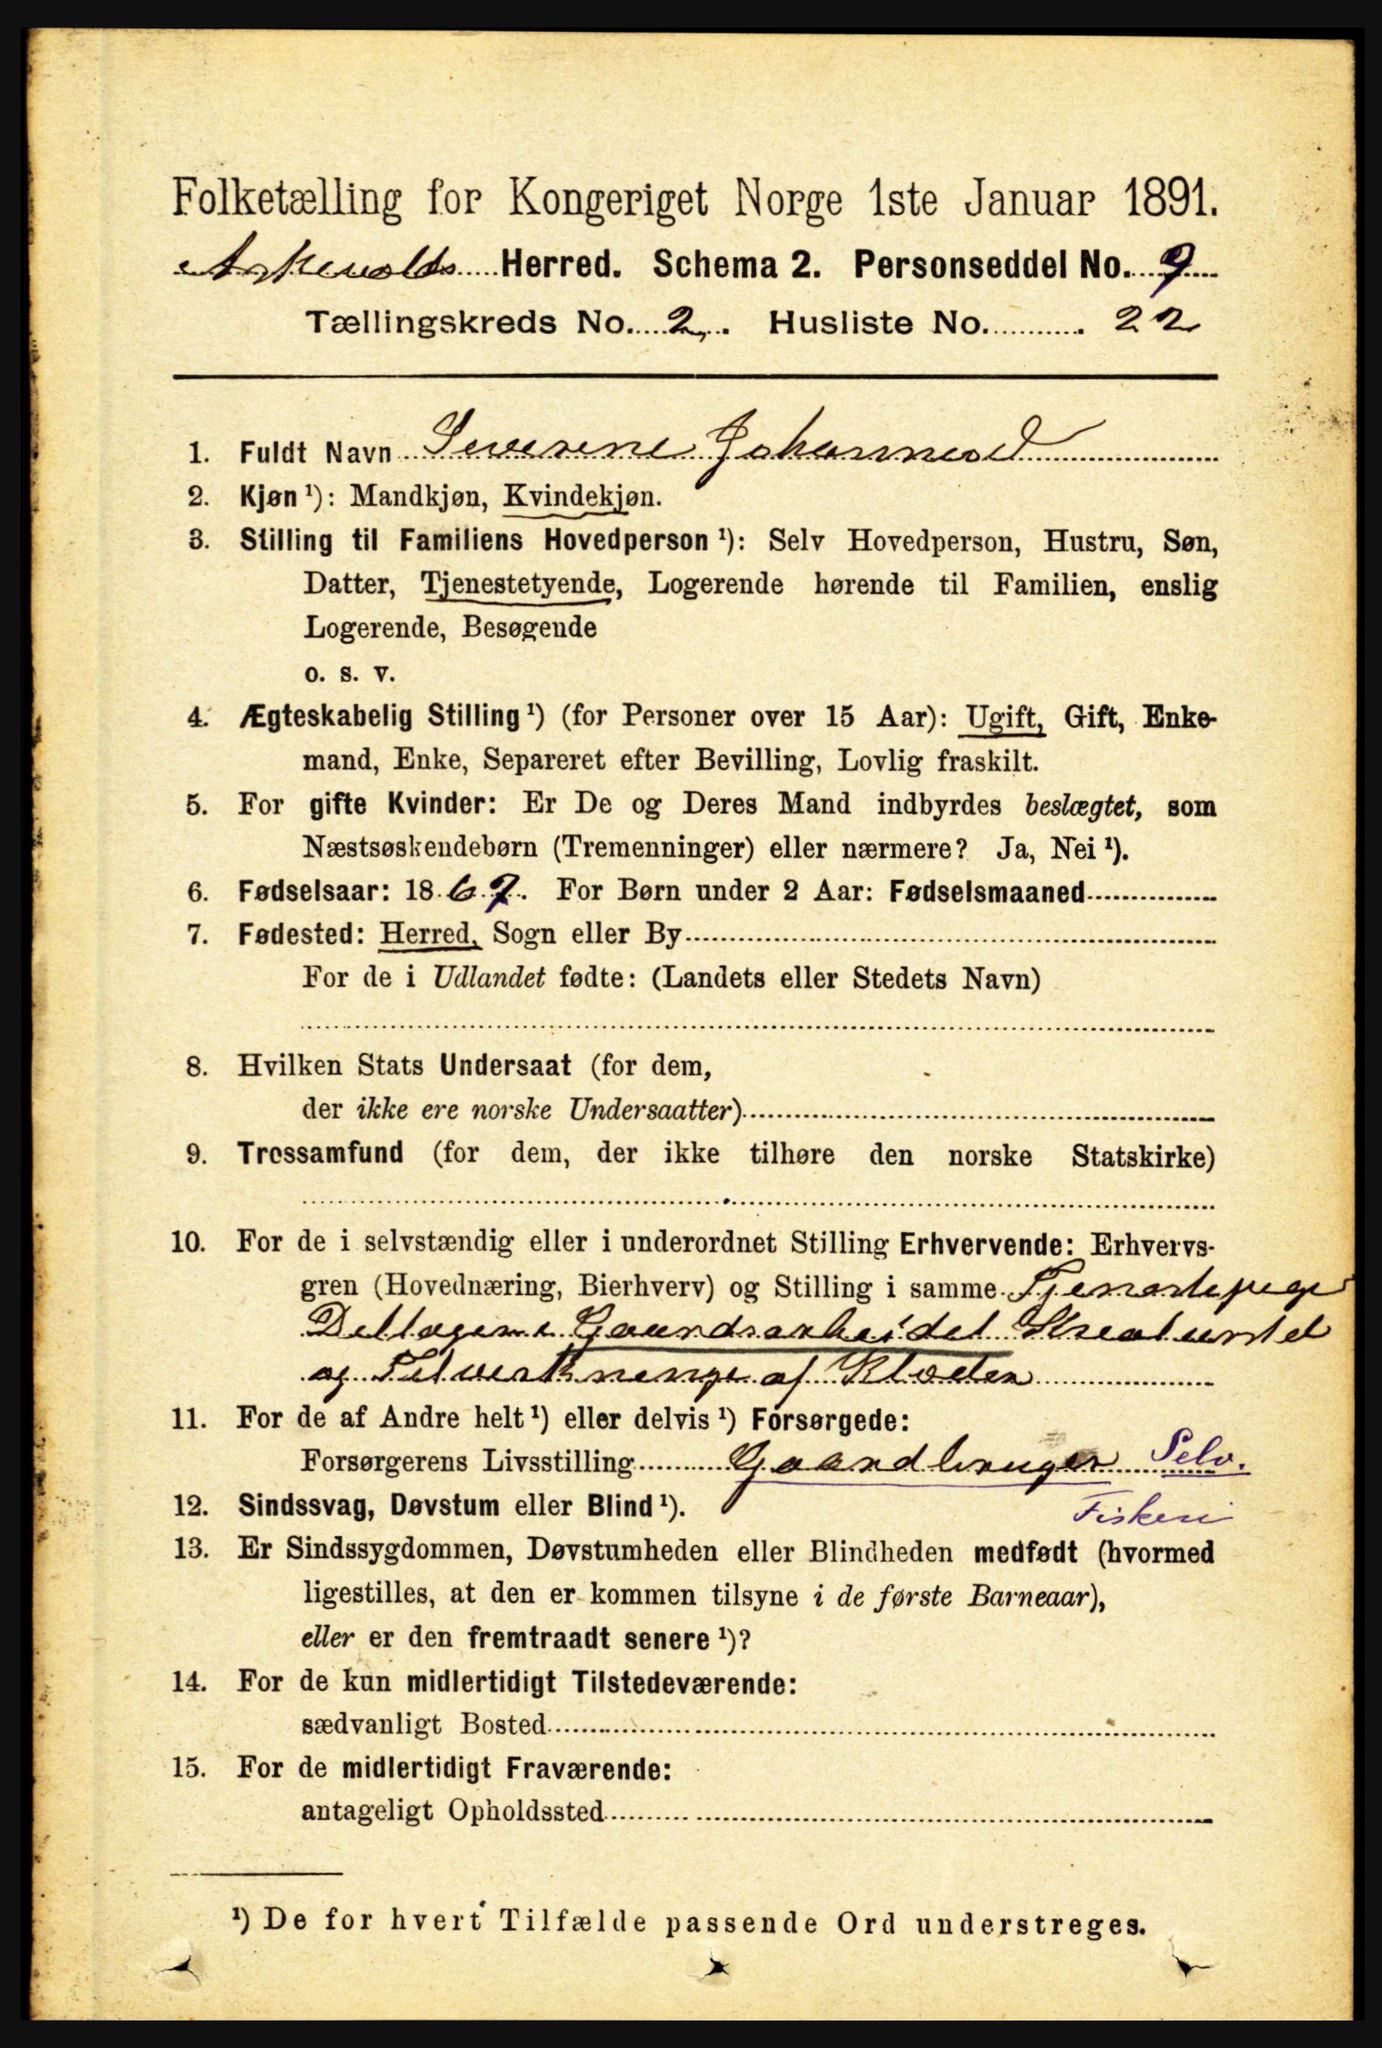 Folketælling for Kongeriget Norge 1ste Januar 1891.
Askevolds Herred. Schema 2. Personseddel No. 9
Tællingskreds No. 2. Husliste No. 22
1. Fuldt Navn Severine Johannesd
2. Kjøn ¹): Mandkjøn, Kvindekjøn.
3. Stilling til Familiens Hovedperson ¹): Selv Hovedperson, Hustru, Søn,
Datter, Tjenestetyende, Logerende hørende til Familien, enslig
Logerende, Besøgende
o. s. v.
4. Ægteskabelig Stilling ¹) (for Personer over 15 Aar): Ugift, Gift, Enke-
mand, Enke, Separeret efter Bevilling, Lovlig fraskilt.
5. For gifte Kvinder: Er De og Deres Mand indbyrdes beslægtet, som
Næstsøskendebørn (Tremenninger) eller nærmere? Ja, Nei ¹).
6. Fødselsaar: 1867. For Børn under 2 Aar: Fødselsmaaned
7. Fødested: Herred, Sogn eller By
For de i Udlandet fødte: (Landets eller Stedets Navn)
8. Hvilken Stats Undersaat (for dem,
der ikke ere norske Undersaatter)
9. Trossamfund (for dem, der ikke tilhøre den norske Statskirke)
10. For de i selvstændig eller i underordnet Stilling Erhvervende: Erhvervs-
gren (Hovednæring, Bierhverv) og Stilling i samme Tjenestepige
Deltager i Gaardsarbeidet
og Tilvirkninge af Klæder
11. For de af Andre helt ¹) eller delvis ¹) Forsørgede:
Forsørgerens Livsstilling Gaardbruger Selv.
12. Sindssvag, Døvstum eller Blind ¹). Fiskeri
13. Er Sindssygdommen, Døvstumheden eller Blindheden medfødt (hvormed
ligestilles, at den er kommen tilsyne i de første Barneaar),
eller er den fremtraadt senere ¹)?
14. For de kun midlertidigt Tilstedeværende:
sædvanligt Bosted
15. For de midlertidigt Fraværende:
antageligt Opholdssted
¹) De for hvert Tilfælde passende Ord understreges.